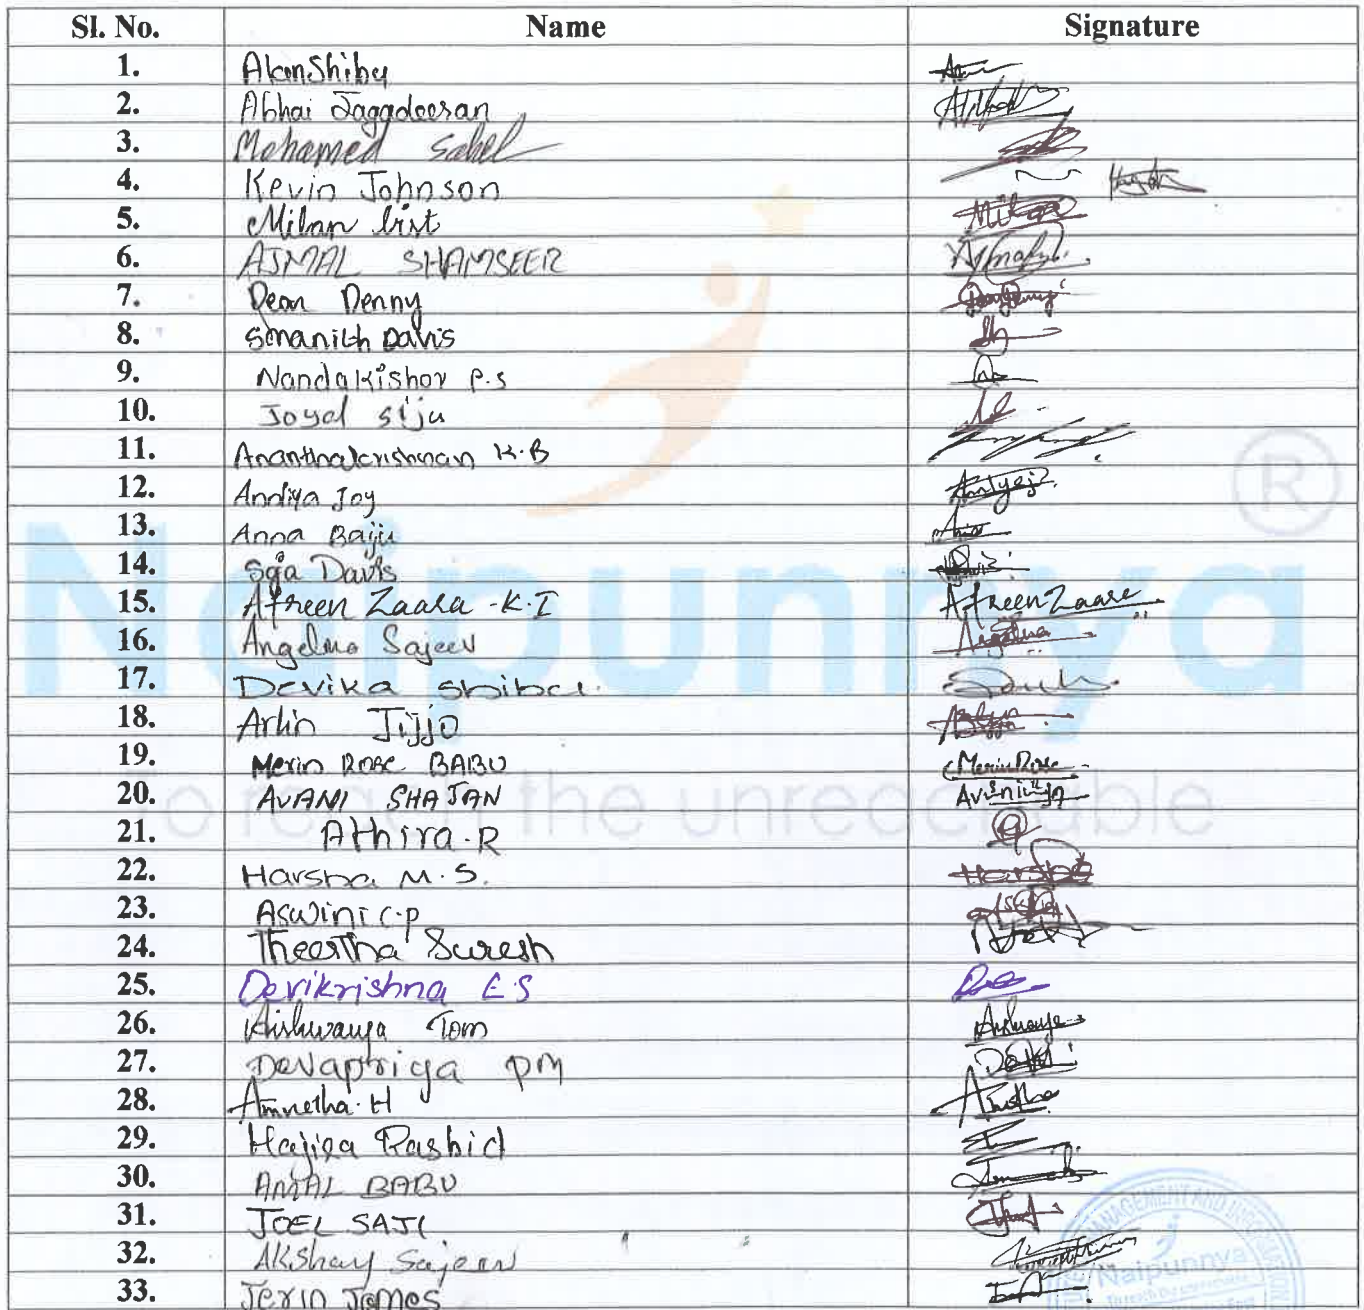 Sl. No. Name Signature
1. Alan Shibu
2. Abhai Jagadeesan
3. Mohamed Sahel
4. Kevin Johnson
5. Milan
6. AJMAL SHAMSEER
7. Dean Denny
8. Smanith Davis
9. Nandakishor P.S
10. Joyal siju
11. Ananthakrishnan K.B
12. Andiya Joy
13. Anna Baiju
14. Davis
15. Afreen Zaara -K.I Afreen Zaara
16. Angelina Sajeev Angelina
17. Devika shibu.
18. Arlin Jijjo
19. Merin Rose BABU Merin Rose
20. AVANI SHAJAN
21. Athira.R
22. Harsha M.S. Harsha
23. Aswini C.P
24. Theertha Suresh
25. Devikrishna E.S
26. Aishwarya Tom
27. Devapriya PM
28. Amretha.H
29. Hajira Rashid
30. AMAL BABU
31. JOEL SAJI
32. Akshay Sajeev
33. Jerin James
Naipunnya ®
To reach the unreachable
MANAGEMENT AND
Naipunnya